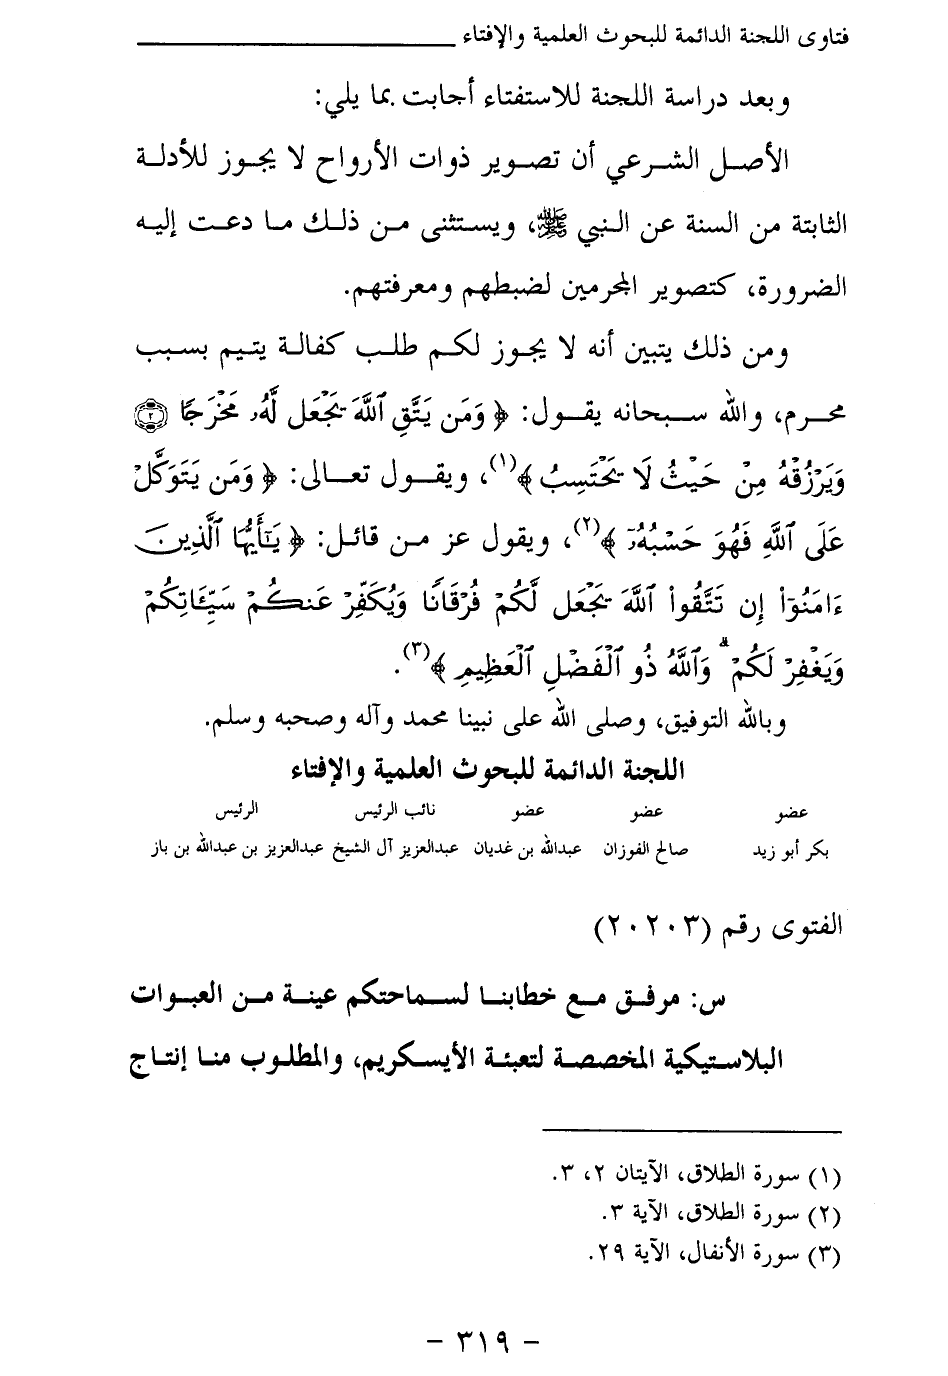 فتاوى اللجنة الدائمة للبحوث العلمية والإفتاء
وبعد دراسة اللجنة للاستفتاء أجابت بما يلي:
الأصل الشرعي أن تصوير ذوات الأرواح لا يجوز للأدلة
الثابتة من السنة عن النبي ﷺ، ويستثنى من ذلك ما دعت إليه
الضرورة، كتصوير المجرمين لضبطهم ومعرفتهم.
ومن ذلك يتبين أنه لا يجوز لكم طلب كفالة يتيم بسبب
محرم، والله سبحانه يقول: ﴿ وَمَن يَتَّقِ ٱللَّهَ يَجْعَل لَّهُۥ مَخْرَجًا ۝٢
وَيَرْزُقْهُ مِنْ حَيْثُ لَا يَحْتَسِبُ ﴾(١)، ويقول تعالى: ﴿ وَمَن يَتَوَكَّلْ
عَلَى ٱللَّهِ فَهُوَ حَسْبُهُۥٓ ﴾(٢)، ويقول عز من قائل: ﴿ يَـٰٓأَيُّهَا ٱلَّذِينَ
ءَامَنُوٓا۟ إِن تَتَّقُوا۟ ٱللَّهَ يَجْعَل لَّكُمْ فُرْقَانًا وَيُكَفِّرْ عَنكُمْ سَيِّـَٔاتِكُمْ
وَيَغْفِرْ لَكُمْ ۗ وَٱللَّهُ ذُو ٱلْفَضْلِ ٱلْعَظِيمِ ﴾(٣).
وبالله التوفيق، وصلى الله على نبينا محمد وآله وصحبه وسلم.
اللجنة الدائمة للبحوث العلمية والإفتاء
عضو عضو عضو نائب الرئيس الرئيس
بكر أبو زيد صالح الفوزان عبدالله بن غديان عبدالعزيز آل الشيخ عبدالعزيز بن عبدالله بن باز
الفتوى رقم (٢٠٢٠٣)
س: مرفق مع خطابنا لسماحتكم عينة من العبوات
البلاستيكية المخصصة لتعبئة الأيسكريم، والمطلوب منا إنتاج
(١) سورة الطلاق، الآيتان ٢، ٣.
(٢) سورة الطلاق، الآية ٣.
(٣) سورة الأنفال، الآية ٢٩.
- ٣١٩ -